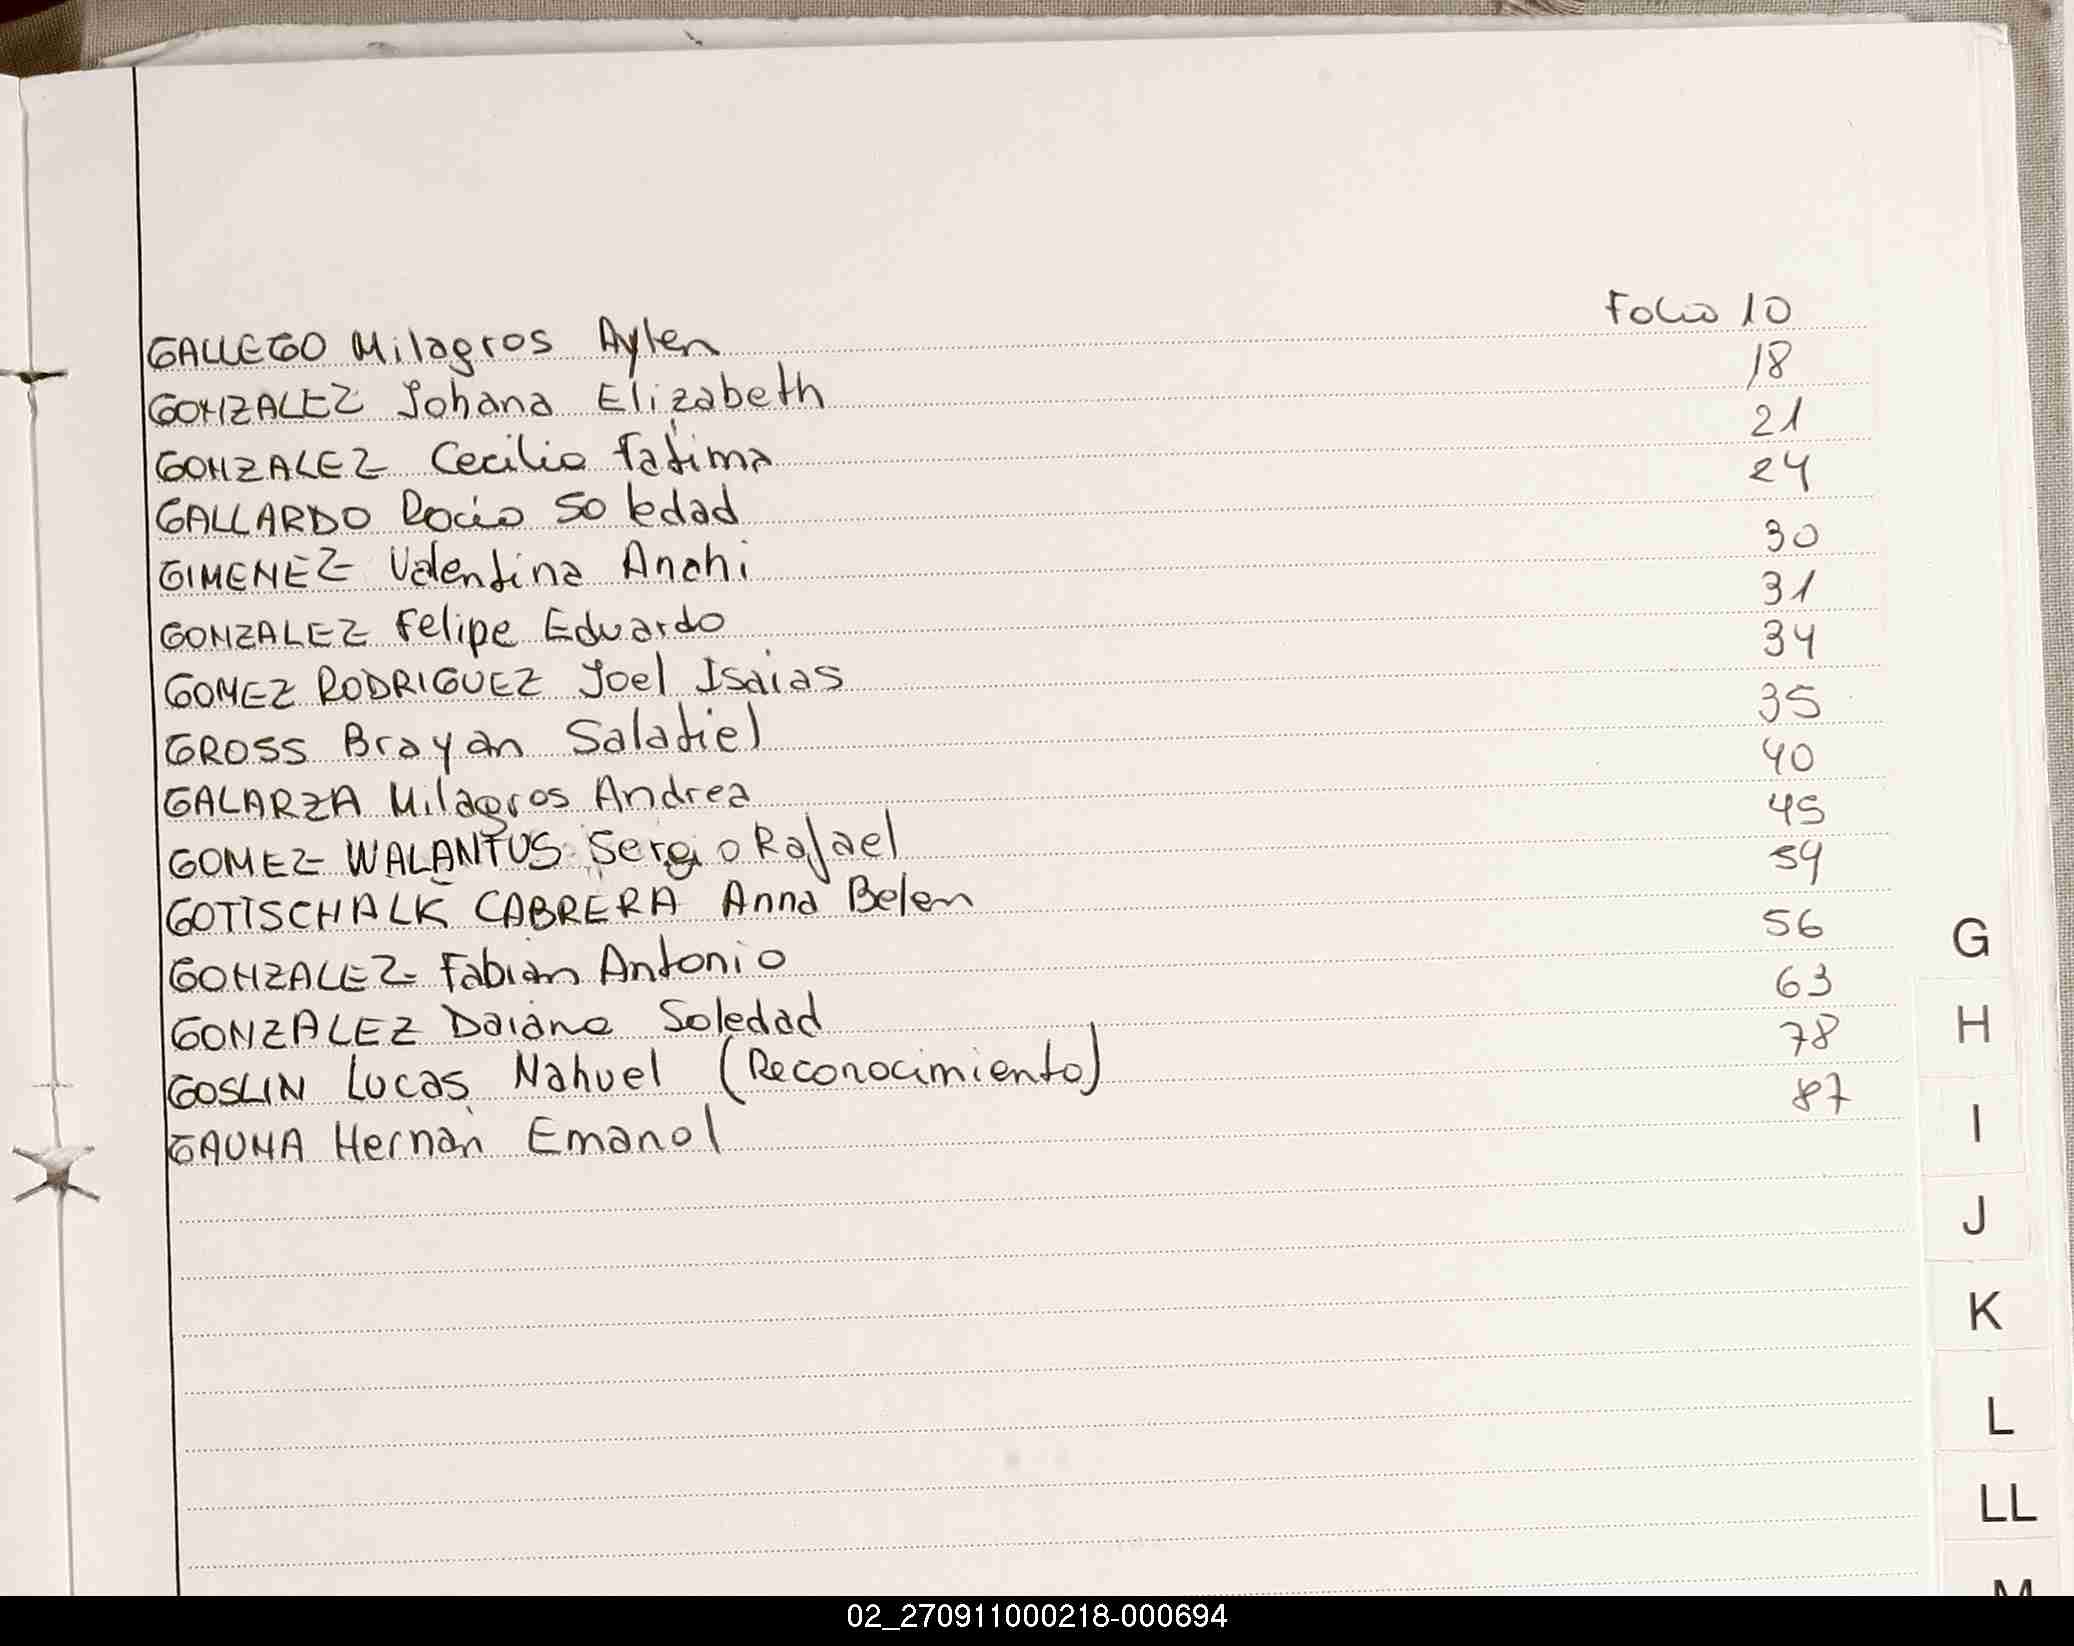 GALLEGO Milagros Aylen Folio 10
GONZALEZ Johana Elizabeth 18
GONZALEZ Cecilia Fatima 21
GALLARDO Rocio Soledad 24
GIMENEZ Valentina Anahi 30
GONZALEZ Felipe Eduardo 31
GOMEZ RODRIGUEZ Joel Isaias 34
GROSS Brayan Salatiel 35
GALARZA Milagros Andrea 40
GOMEZ WALANTUS Sergio Rafael 45
GOTTSCHALK CABRERA Anna Belen 54
GONZALEZ Fabian Antonio 56
GONZALEZ Daiana Soledad 63
GOSLIN Lucas Nahuel (Reconocimiento) 78
GAUNA Hernan Emanol 87
G
H
I
J
K
L
LL
M
02_270911000218-000694